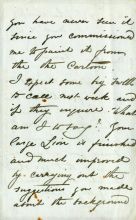 you have never seen it
since you commissioned
me to paint it from
the the Cartoon
I expect some big
to call next week and
if they inquire what
am I to say? Your
large Lion is finished
and much improved
by carrying out the
suggestions you made
about the background